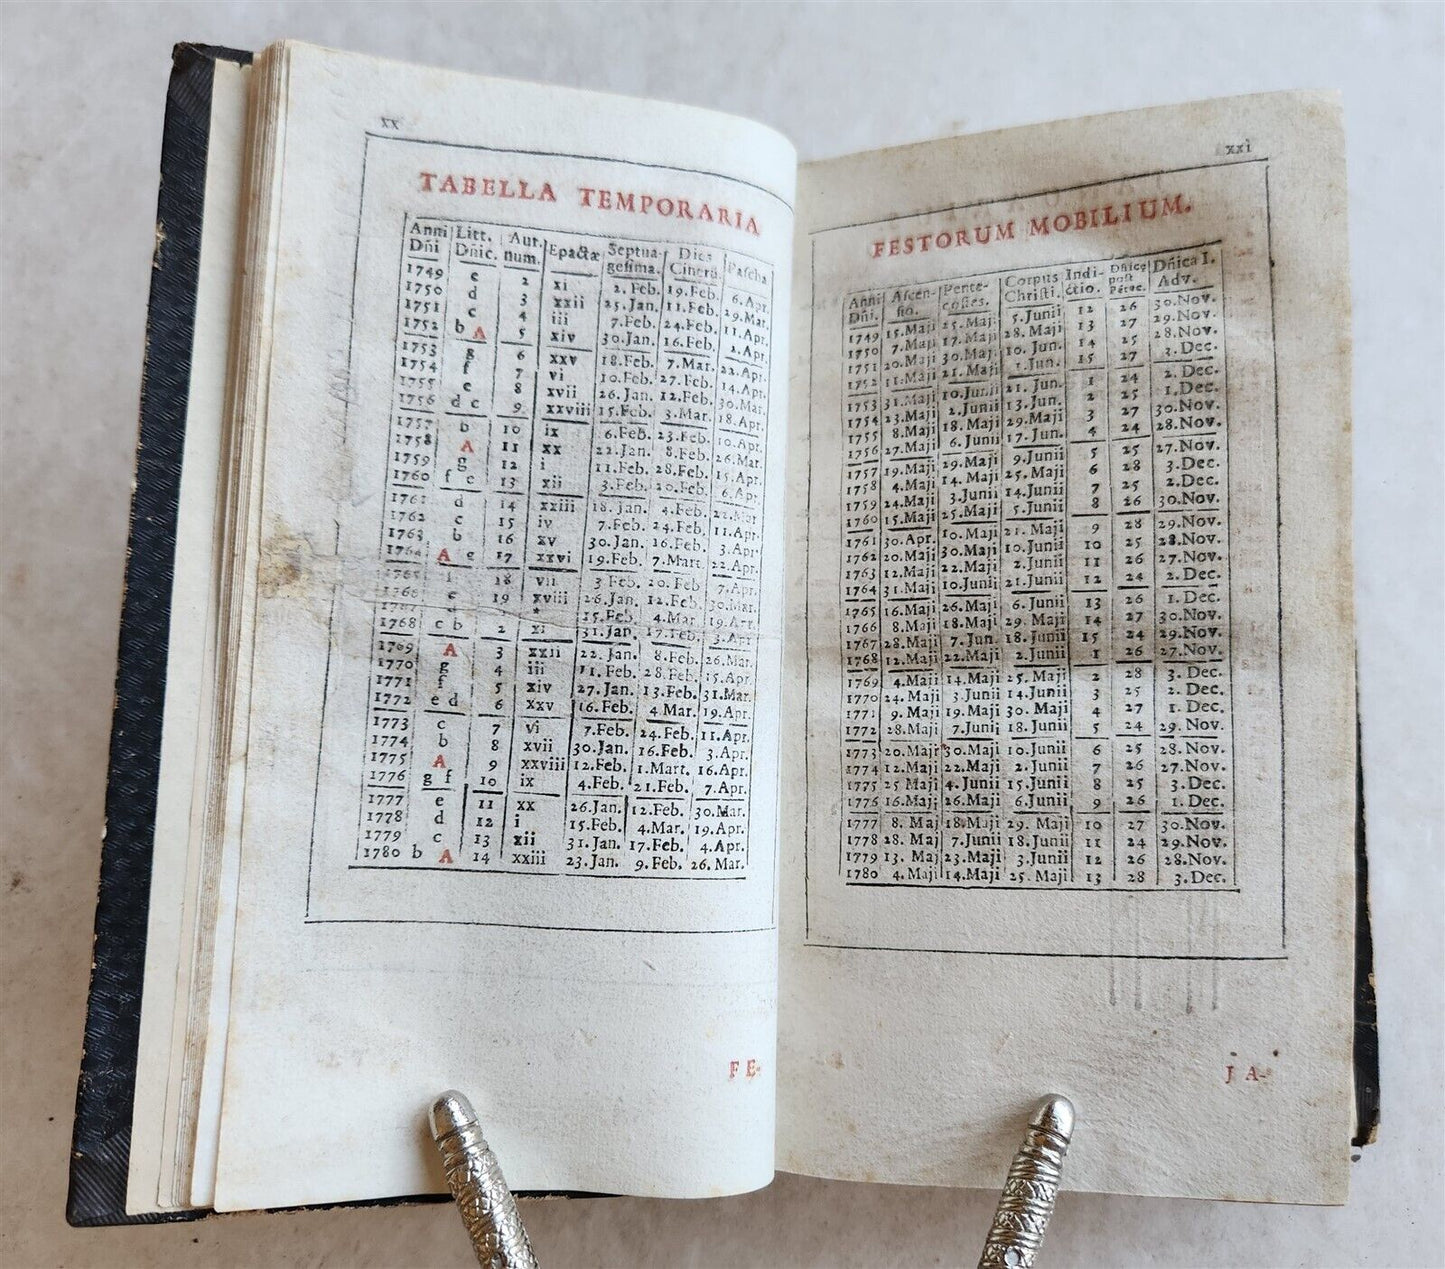 xx
TABELLA TEMPORARIA
Anni Dñi Litt. Dñic. Aur. num. Epactæ Septuagesima. Dies Cinerū Pascha
1749 e 2 xi 2. Feb. 19. Feb. 6. Apr.
1750 d 3 xxii 25. Jan. 11. Feb. 29. Mar.
1751 c 4 iii 7. Feb. 24. Feb. 11. Apr.
1752 b A 5 xiv 30. Jan. 16. Feb. 2. Apr.
1753 g 6 xxv 18. Feb. 7. Mar. 22. Apr.
1754 f 7 vi 10. Feb. 27. Feb. 14. Apr.
1755 e 8 xvii 26. Jan. 12. Feb. 30. Mar.
1756 d c 9 xxviii 15. Feb. 3. Mar. 18. Apr.
1757 b 10 ix 6. Feb. 23. Feb. 10. Apr.
1758 A 11 xx 22. Jan. 8. Feb. 26. Mar.
1759 g 12 i 11. Feb. 28. Feb. 15. Apr.
1760 f e 13 xii 3. Feb. 20. Feb. 6. Apr.
1761 d 14 xxiii 18. Jan. 4. Feb. 22. Mar
1762 c 15 iv 7. Feb. 24. Feb. 11. Apr.
1763 b 16 xv 30. Jan. 16. Feb. 3. Apr.
1764 A g 17 xxvi 19. Feb. 7. Mart. 22. Apr.
1765 f 18 vii 3 Feb. 20. Feb 7. Apr.
1766 e 19 xviii 26. Jan. 12. Feb. 30. Mar.
1767 d * 15. Feb 4. Mar. 19. Apr.
1768 c b 2 xi 31. Jan. 17. Feb. 3. Apr
1769 A 3 xxii 22. Jan. 8. Feb. 26. Mar.
1770 g 4 iii 11. Feb. 28. Feb. 15. Apr.
1771 f 5 xiv 27. Jan. 13. Feb. 31. Mar.
1772 e d 6 xxv 16. Feb. 4 Mar. 19. Apr.
1773 c 7 vi 7. Feb. 24. Feb. 11. Apr.
1774 b 8 xvii 30. Jan. 16. Feb. 3. Apr.
1775 A 9 xxviii 12. Feb. 1. Mart. 16. Apr.
1776 g f 10 ix 4. Feb. 21. Feb. 7. Apr.
1777 e 11 xx 26. Jan. 12. Feb. 30. Mar.
1778 d 12 i 15. Feb. 4. Mar. 19. Apr.
1779 c 13 xii 31. Jan. 17. Feb. 4. Apr.
1780 b A 14 xxiii 23. Jan. 9. Feb. 26. Mar.
FE-
xxi
FESTORUM MOBILIUM.
Anni Dñi. Ascensio. Pentecostes. Corpus Christi. Indictio. Dñicę post Pētec. Dñica I. Adv.
1749 15. Maji 25. Maji 5. Junii 12 26 30. Nov.
1750 7. Maji 17. Maji 28. Maji 13 27 29. Nov.
1751 20. Maji 30. Maji 10. Jun. 14 25 28. Nov.
1752 11. Maji 21. Maji 1. Jun. 15 27 3. Dec.
1753 31. Maji 10. Junii 21. Jun. 1 24 2. Dec.
1754 23. Maji 2. Junii 13. Jun. 2 25 1. Dec.
1755 8. Maji 18. Maji 29. Maji 3 27 30. Nov.
1756 27. Maji 6. Junii 17. Jun. 4 24 28. Nov.
1757 19. Maji 29. Maji 9. Junii 5 25 27. Nov.
1758 4. Maji 14. Maji 25. Maji 6 28 3. Dec.
1759 24. Maji 3. Junii 14. Junii 7 25 2. Dec.
1760 15. Maji 25. Maji 5. Junii 8 26 30. Nov.
1761 30. Apr. 10. Maji 21. Maji 9 28 29. Nov.
1762 20. Maji 30. Maji 10. Junii 10 25 28. Nov.
1763 12. Maji 22. Maji 2. Junii 11 26 27. Nov.
1764 31. Maji 10. Junii 21. Junii 12 24 2. Dec.
1765 16. Maji 26. Maji 6. Junii 13 26 1. Dec.
1766 8. Maji 18. Maji 29. Maji 14 27 30. Nov.
1767 28. Maji 7. Jun. 18. Junii 15 24 29. Nov.
1768 12. Maji 22. Maji 2. Junii 1 26 27. Nov.
1769 4. Maji 14. Maji 25. Maji 2 28 3. Dec.
1770 24. Maji 3. Junii 14. Junii 3 25 2. Dec.
1771 9. Maji 19. Maji 30. Maji 4 27 1. Dec.
1772 28. Maji 7. Junii 18. Junii 5 24 29. Nov.
1773 20. Maji 30. Maji 10. Junii 6 25 28. Nov.
1774 12. Maji 22. Maji 2. Junii 7 26 27. Nov.
1775 25 Maji 4. Junii 15. Junii 8 25 3. Dec
1776 16. Maji 26. Maji 6. Junii 9 26 1. Dec.
1777 8. Maj 18. Maji 29. Maji 10 27 30. Nov.
1778 28. Maj 7. Junii 18. Junii 11 24 29. Nov.
1779 13. Maj 23. Maji 3. Junii 12 26 28. Nov.
1780 4. Maji 14. Maji 25. Maji 13 28 3. Dec.
JA-